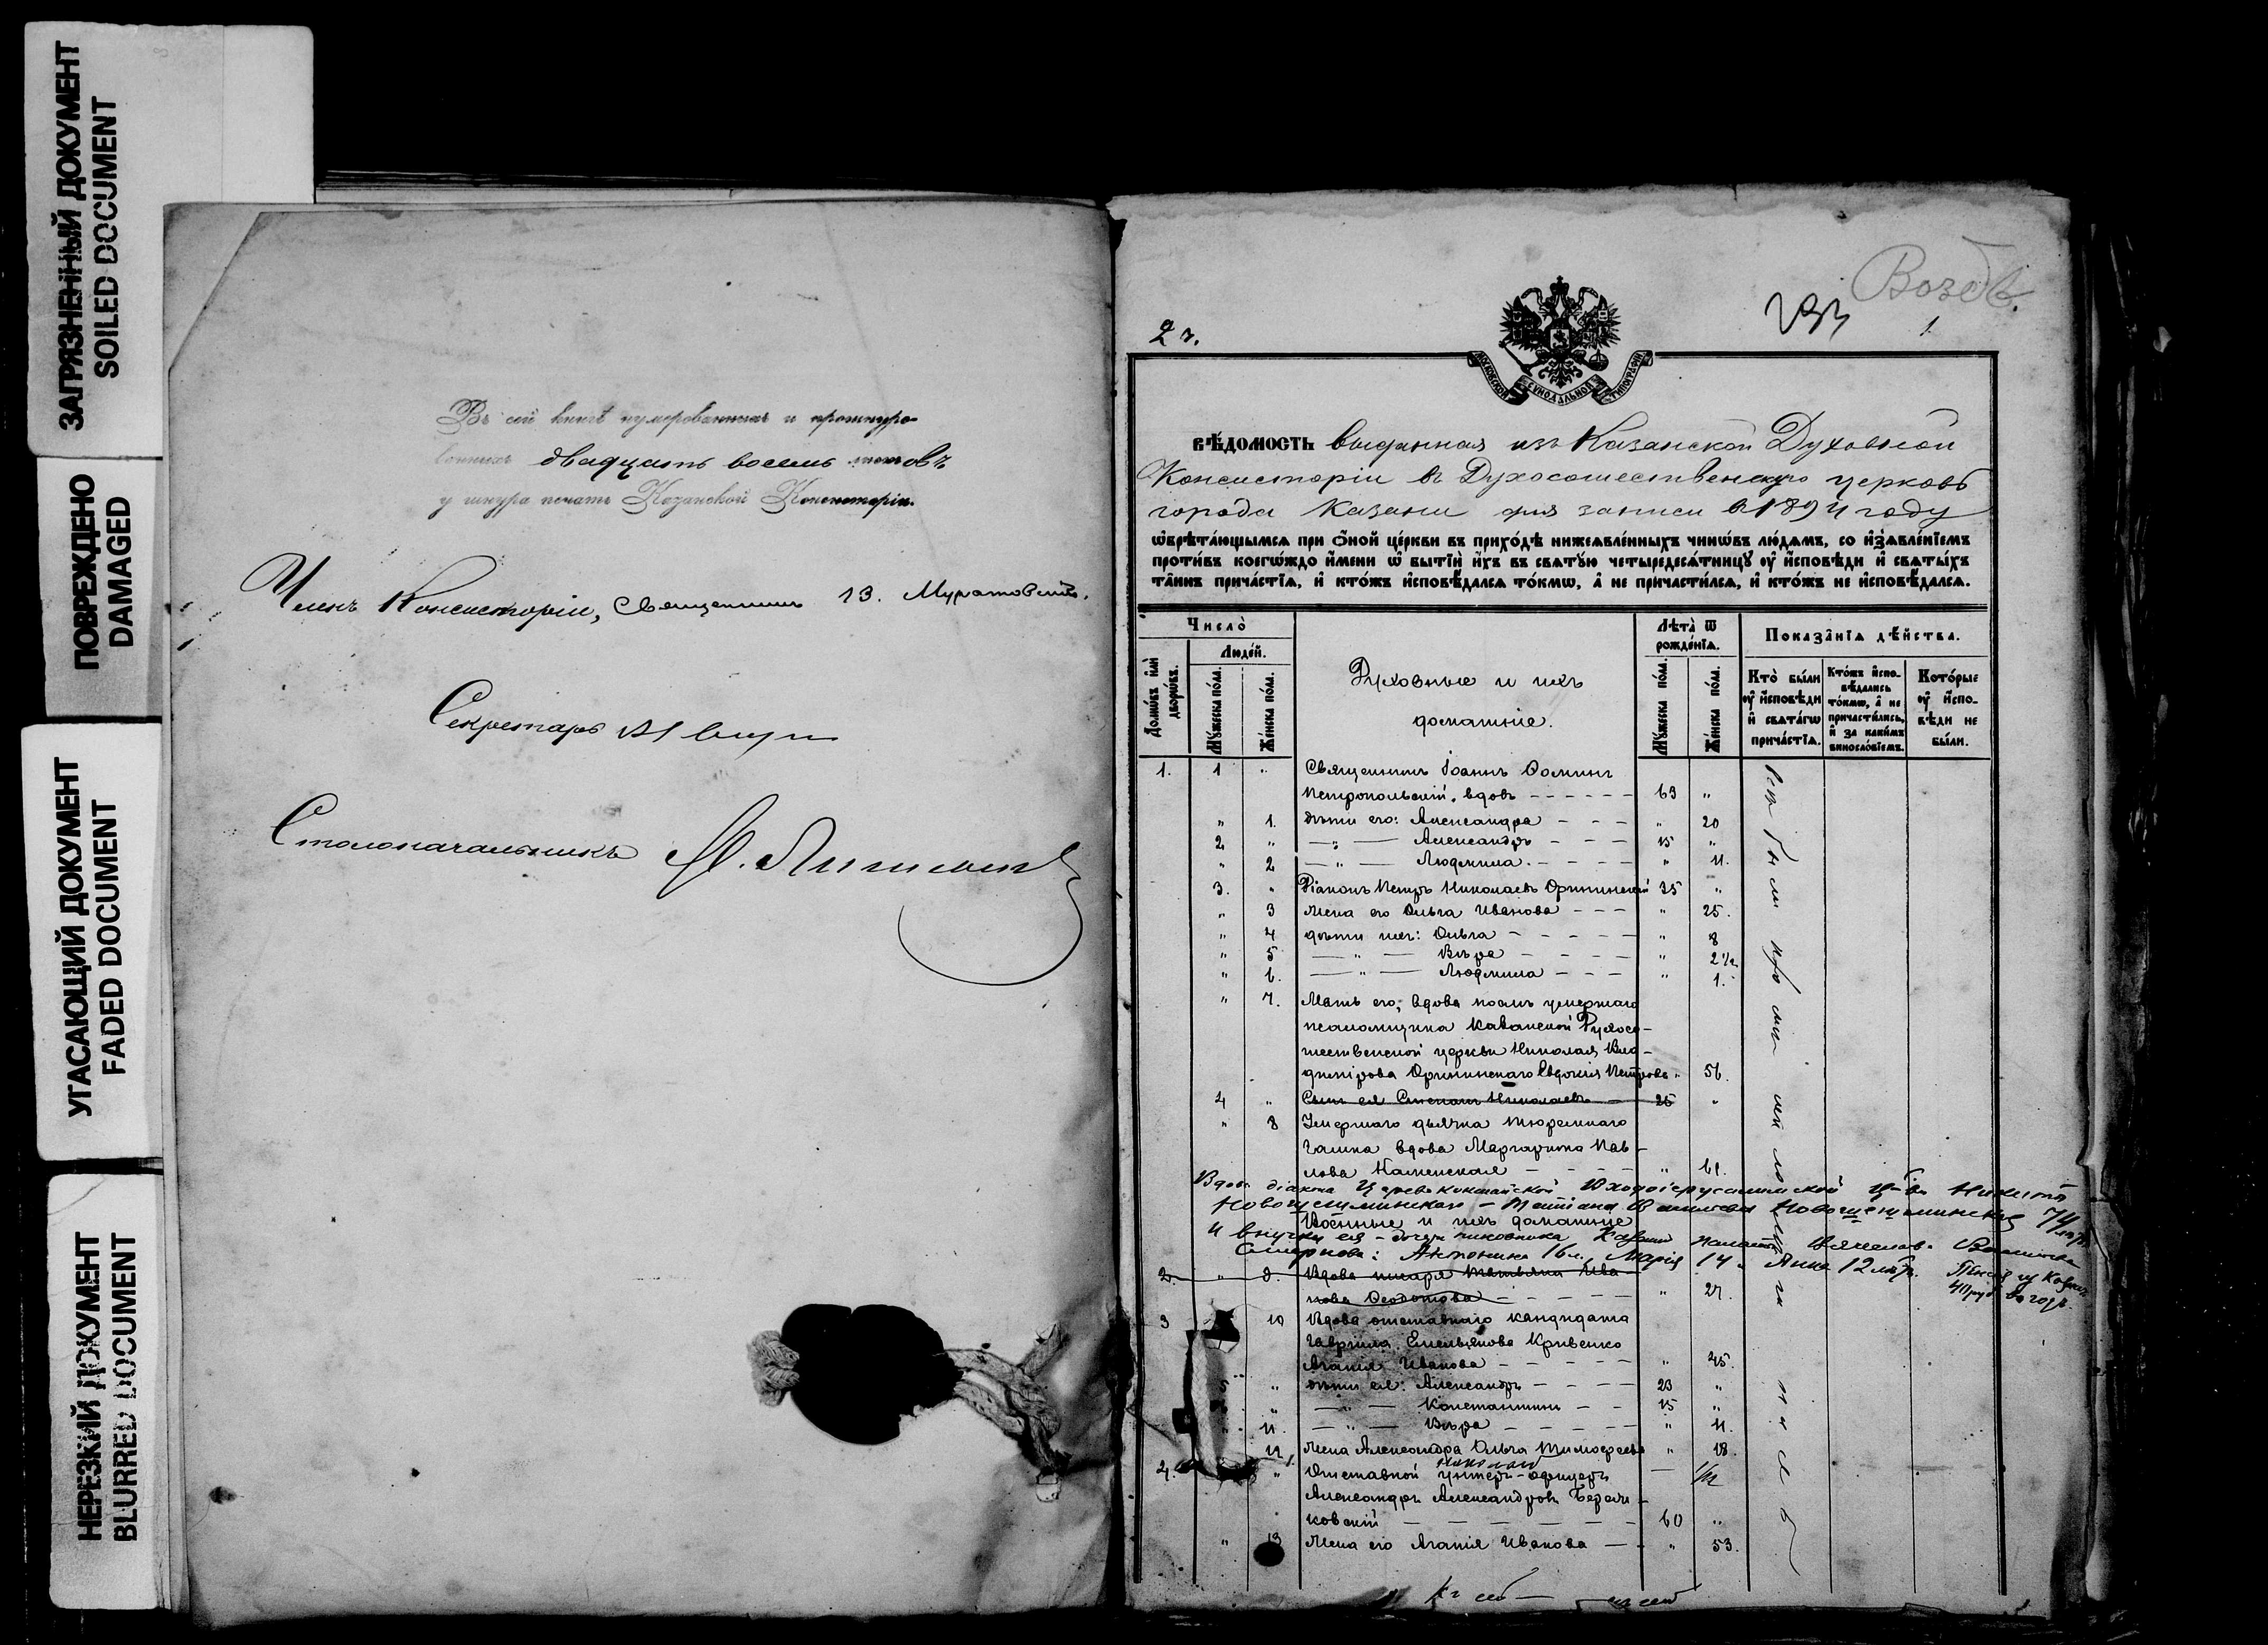 ЗАГРЯЗНЕННЫЙ ДОКУМЕНТ
SOILED DOCUMENT
ПОВРЕЖДЕНО
DAMAGED
УГАСАЮЩИЙ ДОКУМЕНТ
FADED DOCUMENT
НЕРЕЗКИЙ ДОКУМЕНТ
BLURRED DOCUMENT
Въ сей книгѣ нумерованныхъ и прошнуро-
ванныхъ двадцать восемь листовъ
у шнура печать Казанской Консисторіи.
Членъ Консисторіи, Священникъ
Секретарь
Столоначальникъ
Воздв.
1
2 ч.
МОСКОВСКОЙ СѴНОДАЛЬНОЙ ТИПОГРАФІИ
ВѢДОМОСТЬ выданная изъ Казанской Духовной
Консисторіи въ Духосошественскую церковь
города Казани для записи въ 1894 году
ѡбрѣтающымся при ѻной церкви въ приходѣ нижеявленныхъ чинѡвъ людямъ, со изъявленіемъ
противъ коегѡждо имени ѡ бытіи ихъ въ святую четыредесятницу ѹ исповѣди и святыхъ
таинъ причастія, и ктожъ исповѣдался токмѡ, а не причастился, и ктожъ не исповѣдался.
Число
Людей.
Домѡвъ или дворѡвъ.
Мужеска пола.
Женска пола.
Духовные и ихъ
домашніе.
Лѣта ѿ рожденія.
Мужеска пола.
Женска пола.
Показанія дѣйства.
Кто были ѹ исповѣди и святагѡ причастія.
Ктожъ исповѣдались токмѡ, а не причастились, и за какимъ винословіемъ.
Которые ѹ исповѣди не были.
1. 1 " Священникъ Іоаннъ Ѳоминъ
Петропольскій, вдовъ 63 "
" 1. дѣти его: Александра " 20
2 " — " — Александръ 15 "
" 2 — " — Людмила " 11.
3. " Діаконъ Петръ Николаевъ 35 "
" 3 Жена его Ольга Иванова " 25.
" 4 дѣти ихъ: Ольга " 8
" 5 — " — Вѣра " 2 1/2
" 6. — " — Людмила " 1.
" 7. Мать его, вдова послѣ умершаго
псаломщика Казанской Духосо-
шественской церкви Николая Вла-
димірова Евдокія Петрова " 56.
4 " Сынъ ея Степанъ Николаевъ 25 "
" 8 Умершаго дьячка тюремнаго
замка вдова Маргарита Пав-
лова Каменская " 61.
Вдова діакона Царевококшайской Входоіерусалимской ц-ви Никиты
Новошешминскаго — Татіана Новошешминская 74 лѣтъ
Военные и ихъ домашніе
и внучки ея — дочери чиновника
Смирнова: Антонина 16 л., Марія 14, Анна 12 лѣтъ.
2. " 9. Вдова писаря Татьяна Ива-
нова Ѳедотова " 27.
3 10 Вдова отставнаго кандидата
Гавріила Емельянова Кривенко
Агапія Иванова " 45.
" дѣти ея: Александръ 23 "
" — " — Константинъ 15 "
11. — " — Вѣра " 11.
12 Жена Александра Ольга Тимофеева " 18.
4. " Отставной унтеръ-офицеръ
Александръ Александровъ
60 "
" 13 Жена его Агапія Иванова " 53.